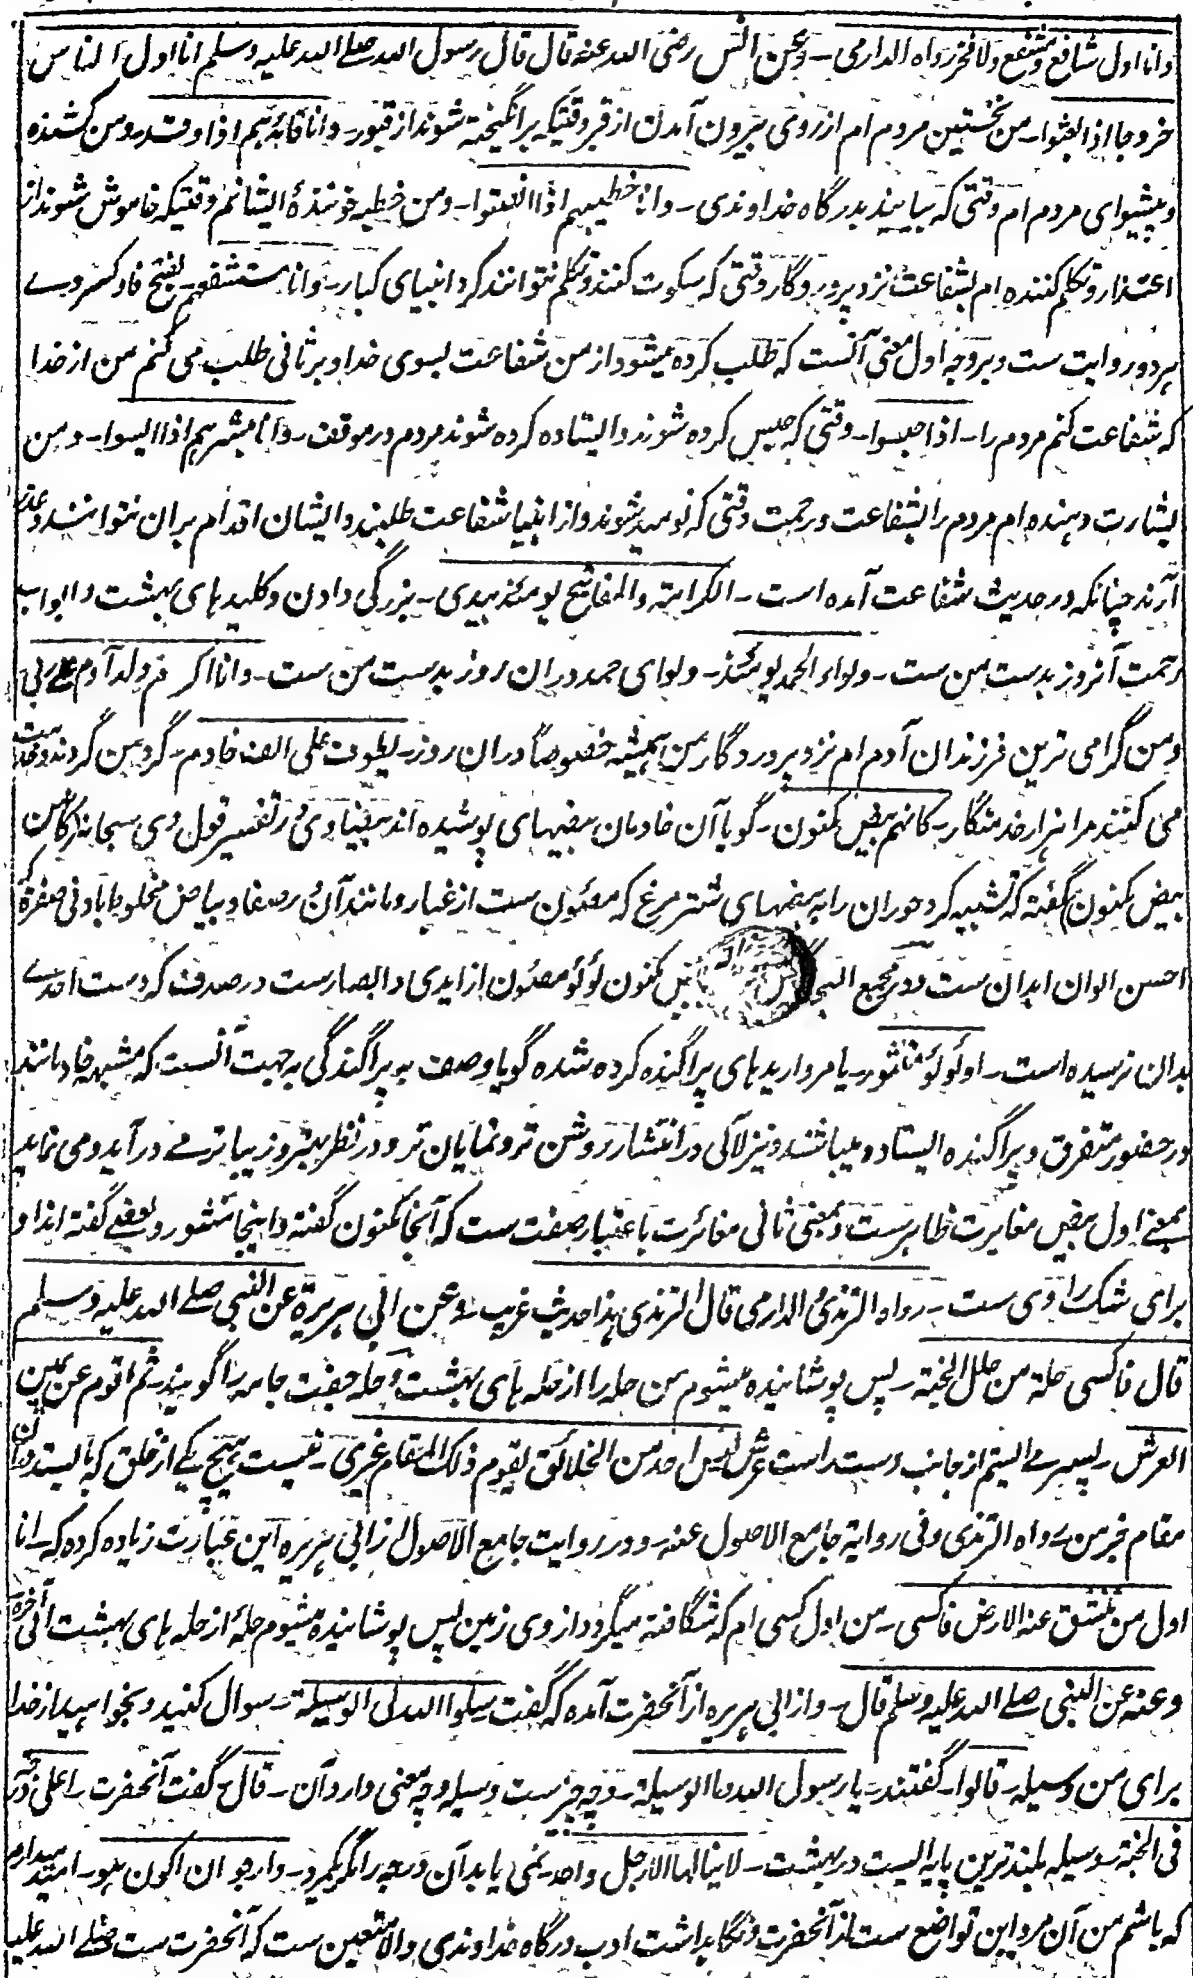 وانا اول شافع ومشفع ولا فخر رواه الدارمی ـ وعن انس رضی الله عنه قال قال رسول الله صلے الله علیه وسلم انا اول الناس
خروجا اذا بعثوا ـ من نخستین مردم ام از روی بیرون آمدن از قبر وقتیکه برانگیخته شوند از قبور ـ وانا قائدهم اذا وفدوا ومن کشنده
وپیشوای مردم ام وقتی که بیایند بدرگاه خداوندی ـ وانا خطیبهم اذا انصتوا ـ ومن خطبه خوانندۀ ایشانم وقتیکه خاموش شوند از
اعتذار وتکلم کننده ام بشفاعت نزد پروردگار وقتی که سکوت کنند وتکلم نتوانند کرد انبیای کبار ـ وانا مستشفعهم بفتح فا وکسر وے
هر دو روایت ست وبر وجه اول معنی آنست که طلب کرده میشود از من شفاعت بسوی خدا وبر ثانی طلب می کنم من از خدا
که شفاعت کنم مردم را ـ اذا حبسوا ـ وقتی که حبس کرده شوند وایستاده کرده شوند مردم در موقف ـ وانا مبشرهم اذا ایسوا ـ ومن
بشارت دهنده ام مردم را بشفاعت ورحمت وقتی که نومید شوند واز انبیا شفاعت طلبند وایشان اقدام بران نتوانند وعذر
آرند چنانکه در حدیث شفاعت آمده است ـ الکرامة والمفاتیح یومئذ بیدی ـ بزرگی دادن وکلیدهای بهشت وابواب
رحمت آنروز بدست من ست ـ ولواء الحمد یومئذ ـ ولوای حمد دران روز بدست من ست ـ وانا اکرم ولد آدم علے ربی
ومن گرامی ترین فرزندان آدم ام نزد پروردگار من همیشه خصوصا دران روز ـ یطوف علی الف خادم ـ گرد من گردند وخدمت
می کنند مرا هزار خدمتگار ـ کانهم بیض مکنون ـ گویا آن خادمان بیضهای پوشیده اند بیضاوی در تفسیر قول وی سبحانه کانهن
بیض مکنون گفته که تشبیه کرد حوران را به بیضهای شتر مرغ که مصئون ست از غبار ومانند آن در صفا وبیاض مخلوط بادنی صفرة که
احسن الوان ابدان ست ودر مجمع البحار مکنون لؤلؤ مصئون از ایدی وابصارست در صدف که دست احدے
بدان نرسیده است ـ او لؤلؤ منثور ـ یا مرواریدهای پراگنده کرده شده گویا وصف به پراگندگی به جهت آنست که مشبه خادمانند
در حضور متفرق وپراگنده ایستاده میباشند ونیز لآلی در انتشار روشن تر ونمایان تر ودر نظر بهتر وزیبا تر مے درآید ومی نماید
بمعنے اول بیض مغایرت ظاهرست وبمعنی ثانی مغائرت باعتبار صفت ست که آنجا مکنون گفته واینجا منثور وبعضے گفته اند او
برای شک راوی ست ـ رواه الترمذی والدارمی قال الترمذی هذا حدیث غریب ـ وعن ابی هریرة عن النبی صلے الله علیه وسلم
قال فاکسی حلة من حلل الجنة ـ پس پوشانیده میشوم من حله را از حله های بهشت وحله جفت جامه را گویند ـ ثم اقوم عن یمین
العرش ـ پستر مے ایستم از جانب دست راست عرش لیس احد من الخلائق یقوم ذلک المقام غیری ـ نیست هیچ یکے از خلق که بایستد دران
مقام جز من رواه الترمذی وفی روایة جامع الاصول عنه ودر روایت جامع الاصول از ابی هریره این عبارت زیاده کرده که ـ انا
اول من تنشق عنه الارض فاکسی ـ من اول کسی ام که شگافته میگردد از وی زمین پس پوشانیده میشوم حلۀ از حله های بهشت الی آخره
وعنه عن النبی صلے الله علیه وسلم قال ـ واز ابی هریره از آنحضرت آمده که گفت سلوا الله لی الوسیلة ـ سوال کنید وبخواهید از خدا
برای من وسیله ـ قالوا ـ گفتند ـ یا رسول الله وما الوسیلة ـ وچه چیزست وسیله وچه معنی دارد آن ـ قال گفت آنحضرت ـ اعلی درجة
فی الجنة ـ وسیله بلندترین پایه ایست در بهشت ـ لا ینالها الا رجل واحد ـ نمی یابد آن درجه را مگر یکمرد ـ وارجو ان اکون هو ـ امید میدارم
که باشم من آن مرد واین تواضع ست از آنحضرت ونگاهداشت ادب درگاه خداوندی والا متعین ست که آنحضرت ست صلے الله علیه